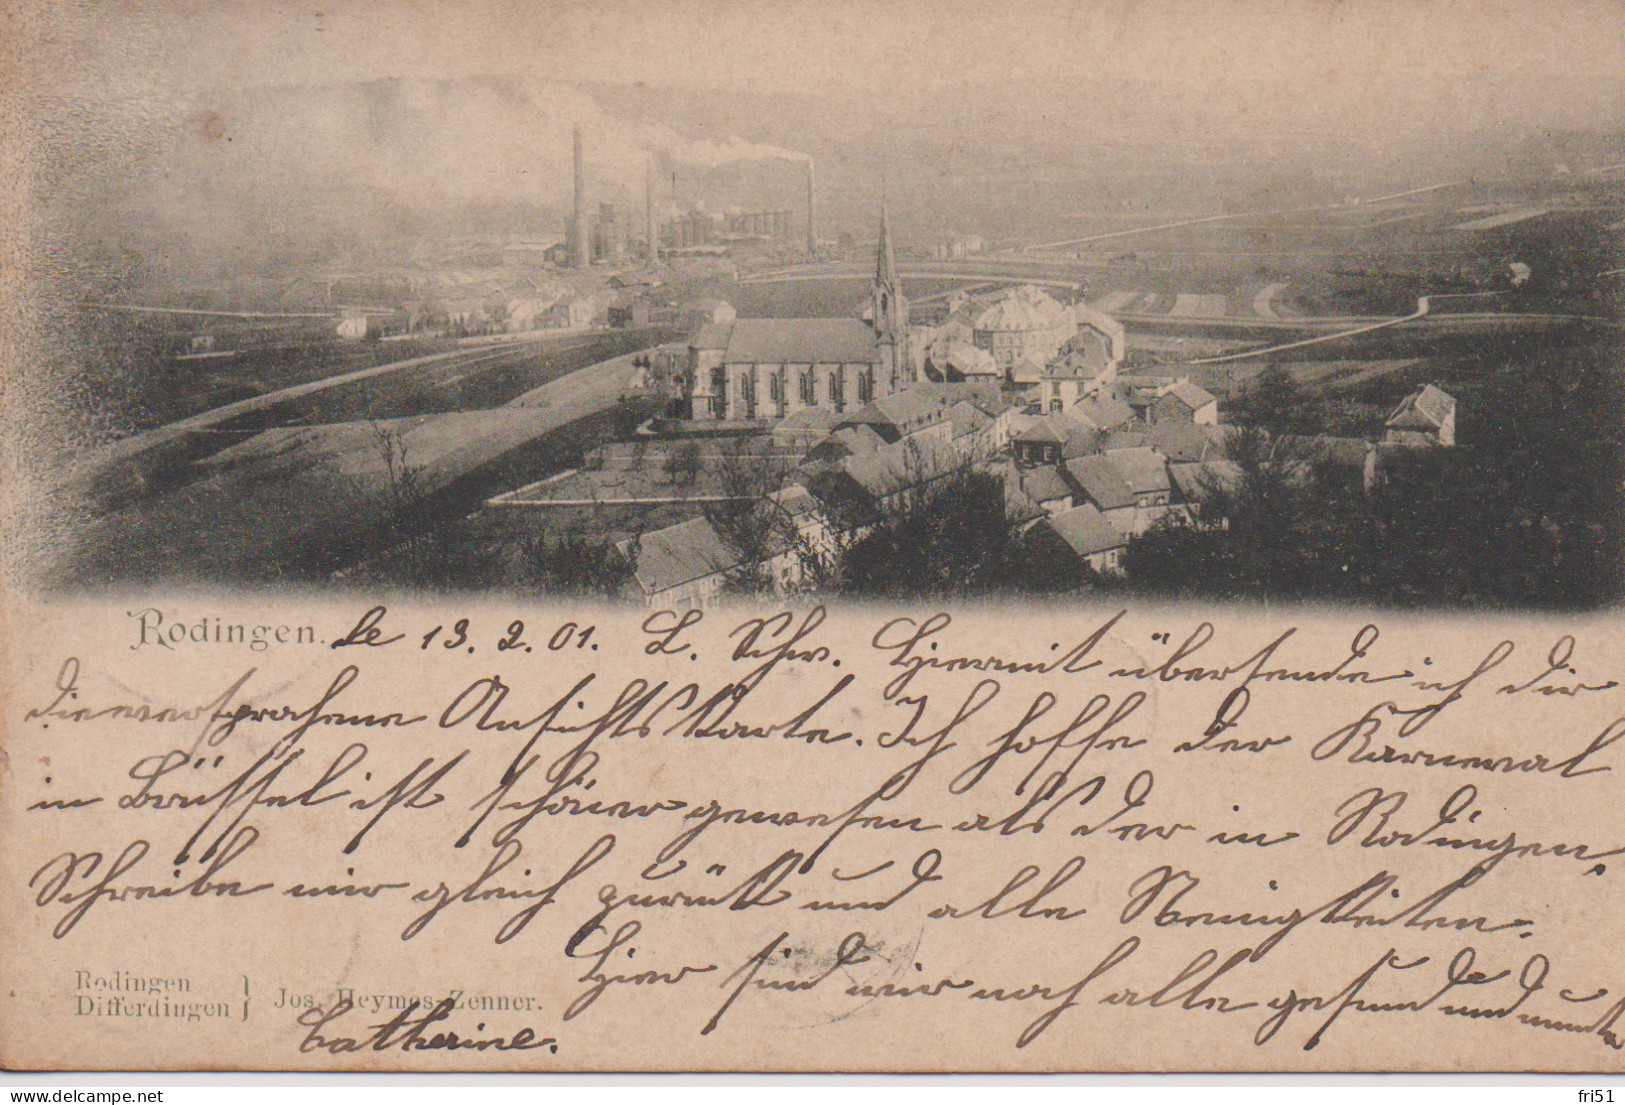 Rodingen. le 13. 2. 01. L. Schw. Hiermit übersende ich dir
die versprochene Ansichtskarte. Ich hoffe der Karneval
in Brüssel ist schöner gewesen als der in Rodingen.
Schreibe mir gleich zurück und alle Neuigkeiten.
Hier sind wir noch alle gesund und munter
Rodingen
Differdingen } Jos. Heymes-Zenner.
Catherine.
delcampe.net
fri51